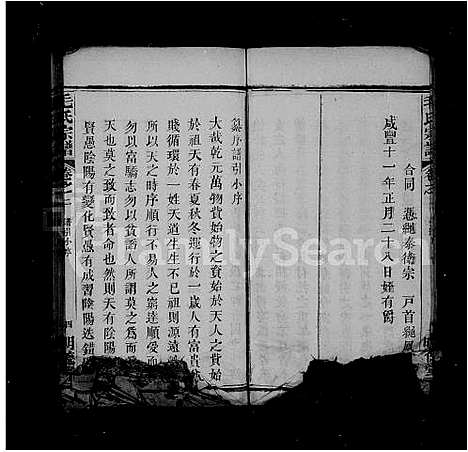 合同 憑繩泰衛宗 戶首
咸豐十一年正月二十八日婦有爵
纂序譜引小序
大哉乾元萬物資始物之資始於天人之資始
於祖天有春夏秋冬運行於一歲人有富貴
賤循環於一姓天道生生不已祖則源遠
所以天之時序順行不易人之窮達順受而
勿以富驕志勿以貧諂人所謂莫之為而
天也莫之致而致者命也然則天有陰陽
賢愚陰陽有變化賢愚有成習陰陽迭錯
毛氏宗譜
卷之二
四
FamilySearch